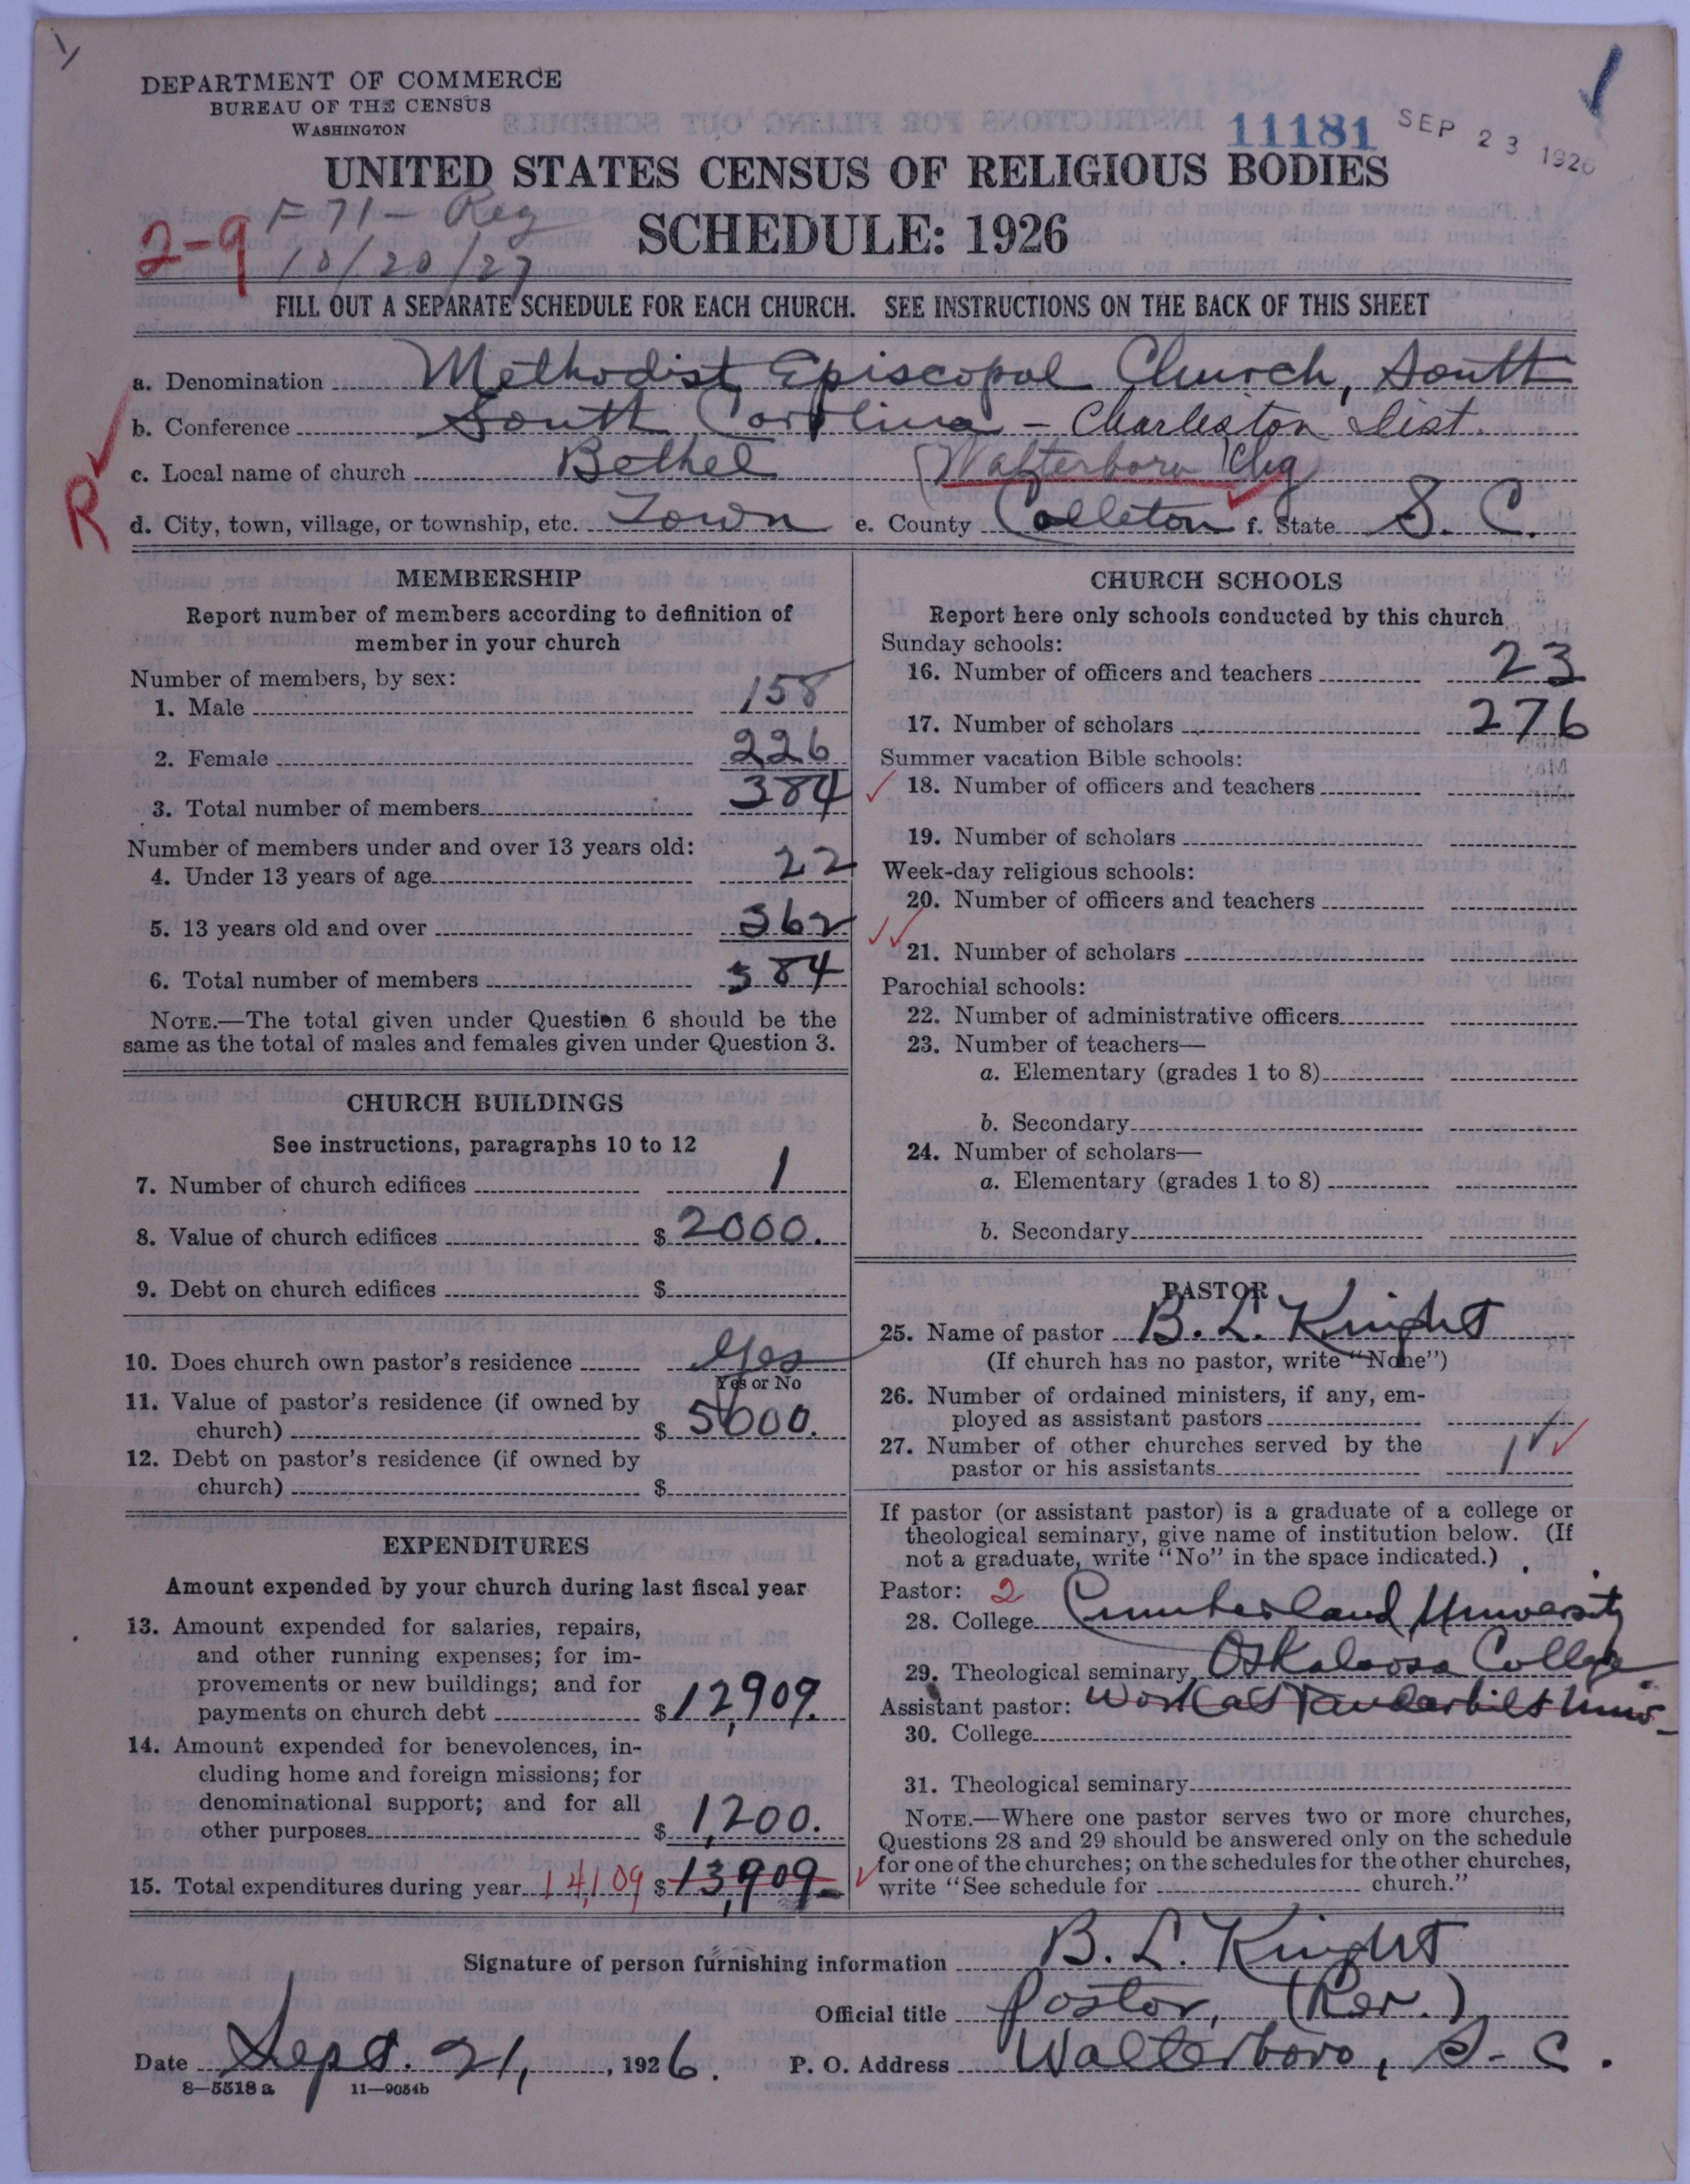 DEPARTMENT OF COMMERCE
BUREAU OF THE CENSUS
WASHINGTON
11181 SEP 23 1926
UNITED STATES CENSUS OF RELIGIOUS BODIES
F 71 - Reg
2-9 10/20/27
SCHEDULE: 1926
FILL OUT A SEPARATE SCHEDULE FOR EACH CHURCH. SEE INSTRUCTIONS ON THE BACK OF THIS SHEET
a. Denomination Methodist Episcopal Church, South
b. Conference South Carolina - Charleston Dist.
c. Local name of church Bethel (Walterboro Chg
R
d. City, town, village, or township, etc. Town e. County Colleton f. State S. C.
MEMBERSHIP
Report number of members according to definition of
member in your church
Number of members, by sex:
1. Male 158
2. Female 226
3. Total number of members 384
Number of members under and over 13 years old:
4. Under 13 years of age 22
5. 13 years old and over 362
6. Total number of members 384
NOTE.—The total given under Question 6 should be the
same as the total of males and females given under Question 3.
CHURCH BUILDINGS
See instructions, paragraphs 10 to 12
7. Number of church edifices 1
8. Value of church edifices $ 2000.
9. Debt on church edifices $
10. Does church own pastor's residence Yes
Yes or No
11. Value of pastor's residence (if owned by
church) $ 5000.
12. Debt on pastor's residence (if owned by
church) $
EXPENDITURES
Amount expended by your church during last fiscal year
13. Amount expended for salaries, repairs,
and other running expenses; for im-
provements or new buildings; and for
payments on church debt $ 12,909.
14. Amount expended for benevolences, in-
cluding home and foreign missions; for
denominational support; and for all
other purposes $ 1,200.
15. Total expenditures during year 14,109 $ 13,909
CHURCH SCHOOLS
Report here only schools conducted by this church
Sunday schools:
16. Number of officers and teachers 23
17. Number of scholars 276
Summer vacation Bible schools:
18. Number of officers and teachers
19. Number of scholars
Week-day religious schools:
20. Number of officers and teachers
21. Number of scholars
Parochial schools:
22. Number of administrative officers
23. Number of teachers—
a. Elementary (grades 1 to 8)
b. Secondary
24. Number of scholars—
a. Elementary (grades 1 to 8)
b. Secondary
PASTOR
25. Name of pastor B. L. Knight
(If church has no pastor, write "None")
26. Number of ordained ministers, if any, em-
ployed as assistant pastors
27. Number of other churches served by the
pastor or his assistants 1
If pastor (or assistant pastor) is a graduate of a college or
theological seminary, give name of institution below. (If
not a graduate, write "No" in the space indicated.)
Pastor: 2
28. College Cumberland University
29. Theological seminary Oskaloosa College
Assistant pastor: Work at Vanderbilt Univ-
30. College
31. Theological seminary
NOTE.—Where one pastor serves two or more churches,
Questions 28 and 29 should be answered only on the schedule
for one of the churches; on the schedules for the other churches,
write "See schedule for church."
Signature of person furnishing information B. L. Knight
Official title Pastor, (Rev.)
Date Sept. 21, 1926. P. O. Address Walterboro, S. C.
8—5518 a 11—9054b